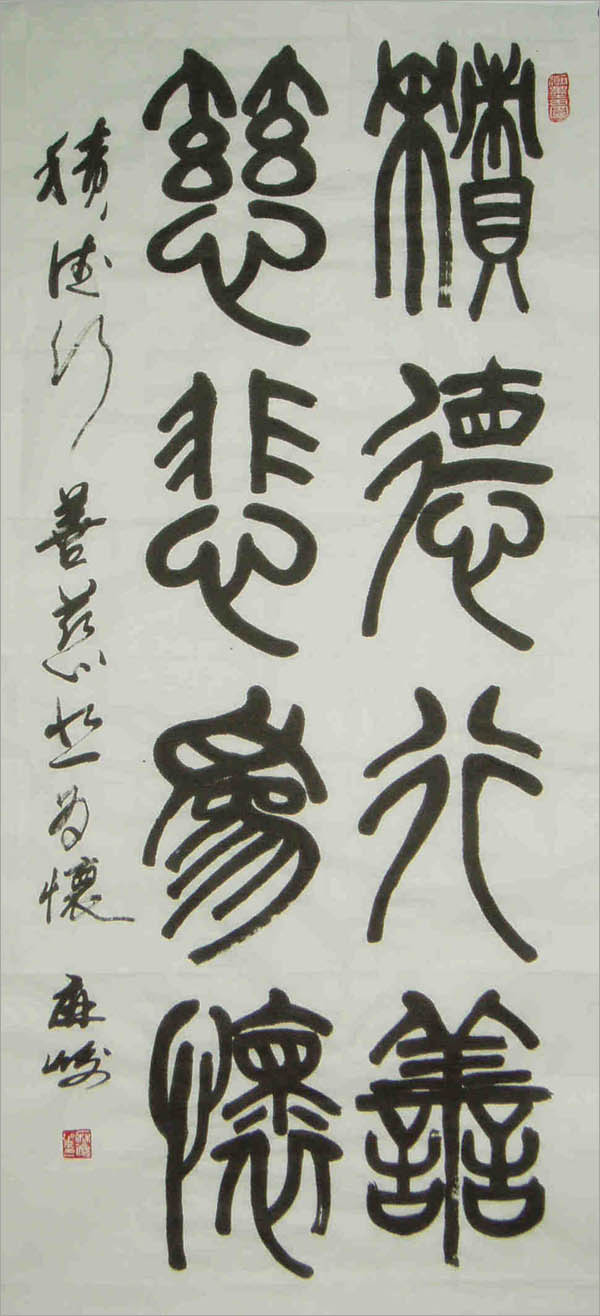 積德行善
慈悲為懷
積德行善慈悲为懷 麻峻